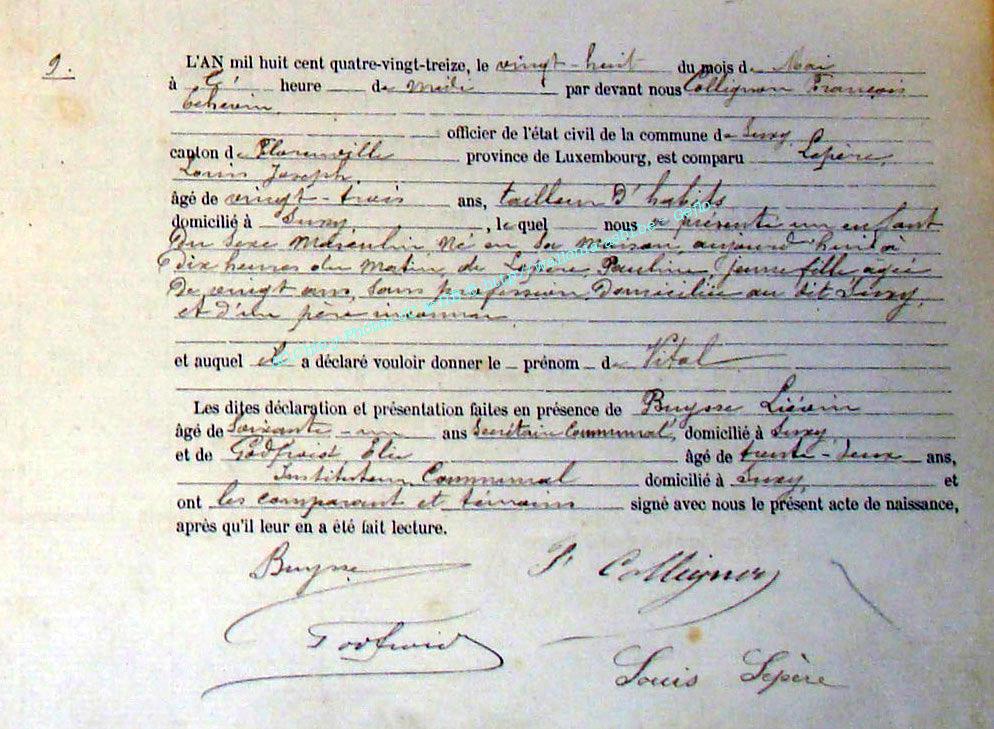 9.
L'AN mil huit cent quatre-vingt-treize, le vingt-huit du mois de Mai
à heure de midi par devant nous Collignon François
Echevin
officier de l'état civil de la commune de Suxy
canton de Florenville province de Luxembourg, est comparu Lepère
Louis Joseph
âgé de vingt-trois ans, tailleur d'habits
domicilié à Suxy, lequel nous a présenté un enfant
du sexe masculin né en sa maison aujourd'hui à
dix heures du matin, de Lepère Pauline, jeune fille, âgée
de vingt ans, sans profession, domiciliée au dit Suxy,
et d'un père inconnu
et auquel il a déclaré vouloir donner le prénom de Vital
Les dites déclaration et présentation faites en présence de Buysse Liévin
âgé de soixante-un ans Secrétaire Communal, domicilié à Suxy
et de Godfroid Elie âgé de trente-deux ans,
Instituteur Communal domicilié à Suxy, et
ont les comparant et témoins signé avec nous le présent acte de naissance,
après qu'il leur en a été fait lecture.
Buysse F Collignon
Godfroid
Louis Lepère